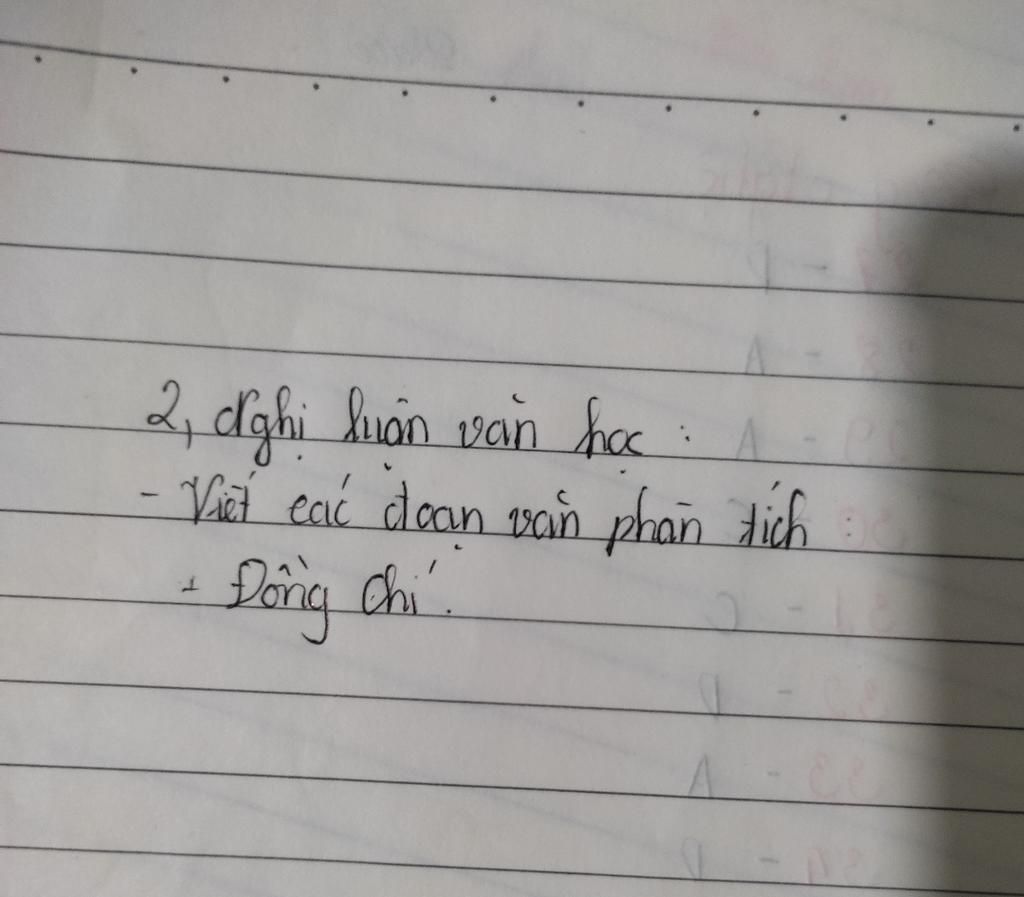 2, Nghị luận văn học :
- Viết các đoạn văn phân tích :
+ Đồng chí .